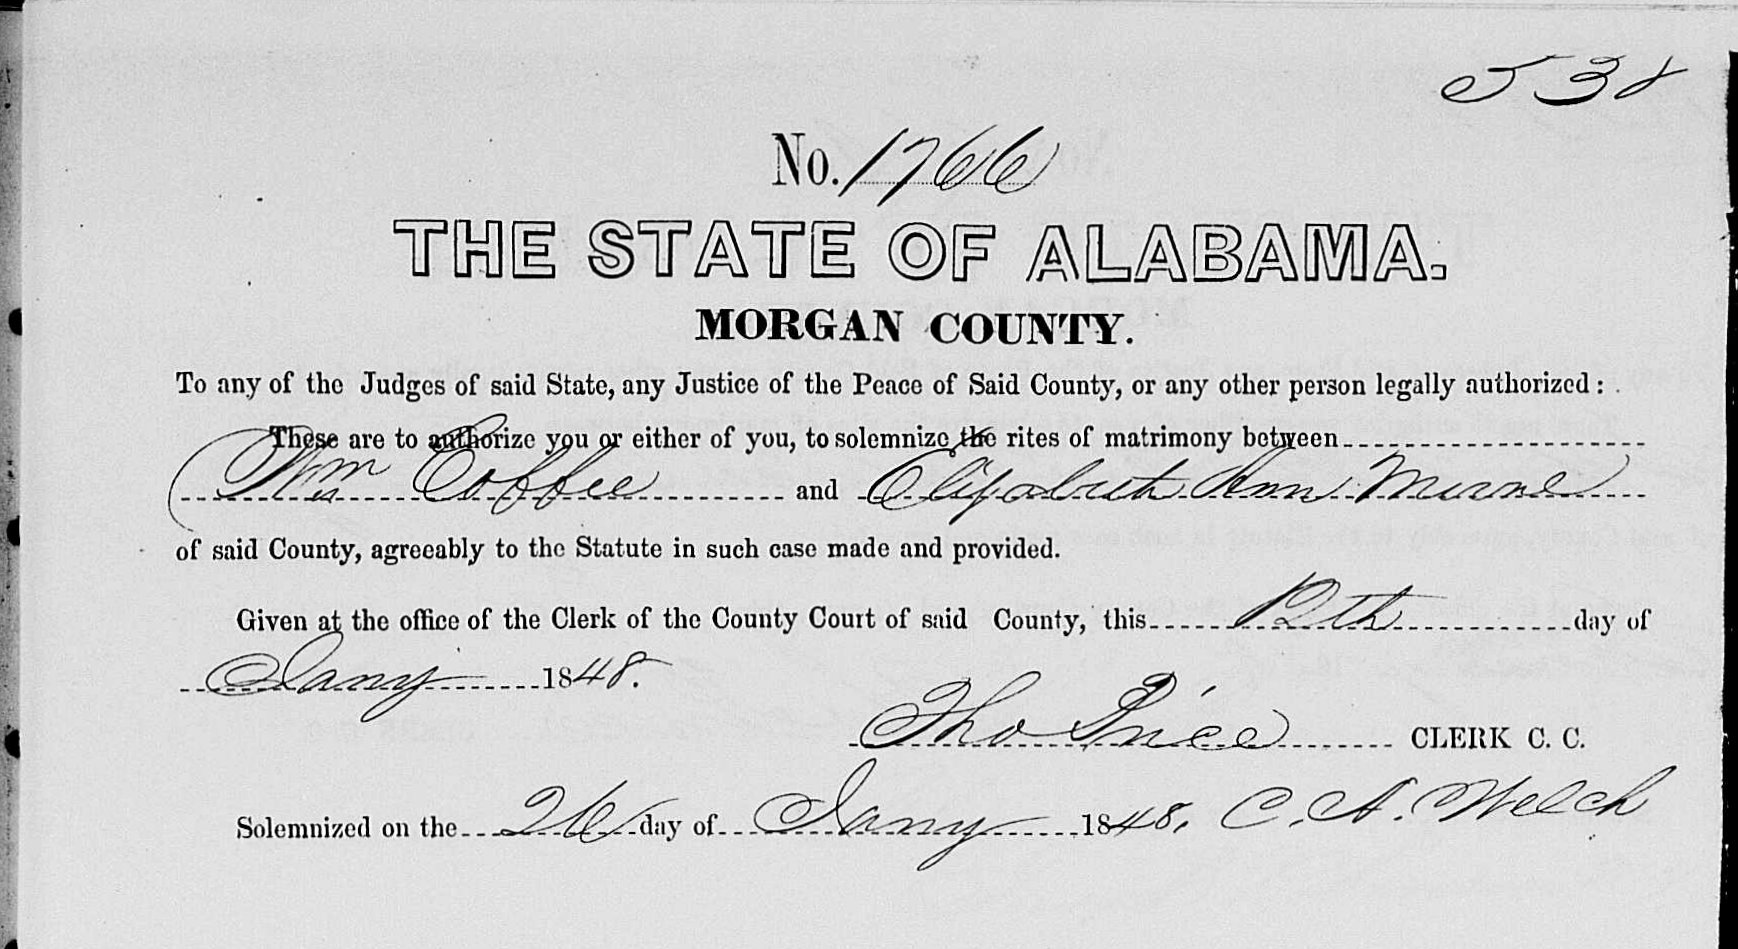 538
No. 1766
THE STATE OF ALABAMA.
MORGAN COUNTY.
To any of the Judges of said State, any Justice of the Peace of Said County, or any other person legally authorized:
These are to authorize you or either of you, to solemnize the rites of matrimony between
Wm Coffee and Elizabeth Ann
of said County, agreeably to the Statute in such case made and provided.
Given at the office of the Clerk of the County Court of said County, this 12th day of
Jany 1848.
Tho Price CLERK C. C.
Solemnized on the 26 day of Jany 1848. C. A. Welch